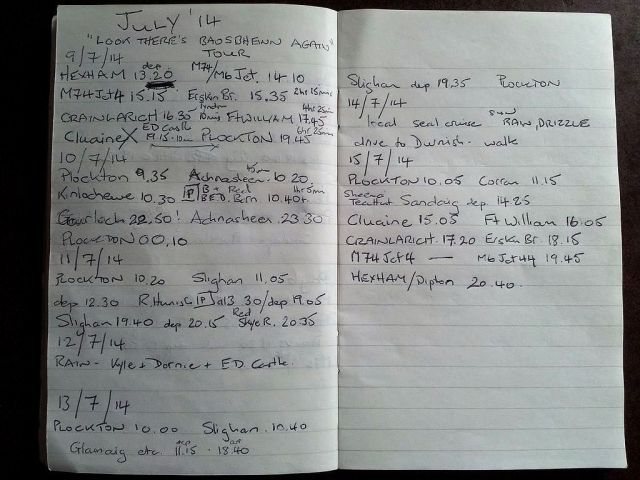 JULY '14
"LOOK THERE'S BAOSBHENN AGAIN"
TOUR
9/7/14
HEXHAM dep 13.20 M74/M6 Jct. 14 10
M74 Jct 4 15.15 Erskin Br. 15.35 2hr 15min
CRAINLARICH 16.30 10min FT WILLIAM 17.45 4hr 25min
Cluaine X ED Castle 19.15-10min PLOCKTON 19.45 6hr 25min
10/7/14
Plockton 9.35 Achnasheen. 10 20.
Kinlochewe 10.30 P B+ Red BED. Barn 10.40+ 1hr 5min
Gairloch 22.50! Achnasheen 23 30
PLOCKTON 00.10
11/7/14
PLOCKTON 10.20 Slighan 11.05
dep 12.30 R.Hunish P a13 30/dep 19.05
Slighan 19.40 dep 20.15 Red Skye R. 20.35
12/7/14
RAIN - Kyle + Dornie + E.D. Castle.
13/7/14
PLOCKTON 10.00 Slighan. 10.40
Glamaig etc. dep 11.15 - arr 18.40
Slighan dep 19.35 PLOCKTON
14/7/14
local seal cruise sun RAIN, DRIZZLE
drive to Durnish - walk
15/7/14
PLOCKTON 10.05 Corran 11.15
Sheena Teahut Sandaig dep. 14.25
Cluaine 15.05 Ft William 16.05
CRAINLARICH. 17.20 Erskin Br. 18.15
M74 Jct 4 — M6 Jct 44 19.45
HEXHAM/Dipton 20.40.